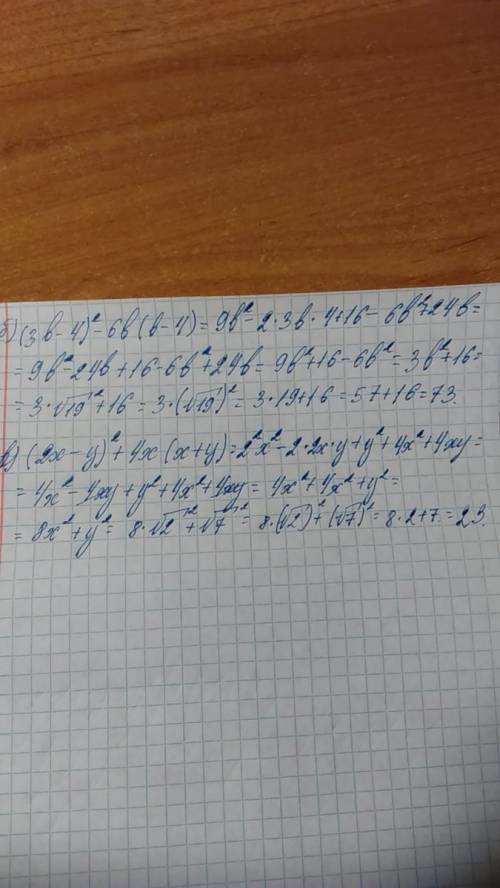 б) (3b-4)²-6b(b-4)=9b²-2·3b·4+16-6b²+24b=
=9b²-24b+16-6b²+24b=9b²+16-6b²=3b²+16=
=3·√19²+16=3·(√19)²=3·19+16=57+16=73.
в) (2x-y)²+4x(x+y)=2²x²-2·2x·y+y²+4x²+4xy=
=4x²-4xy+y²+4x²+4xy=4x²+4x²+y²=
=8x²+y²=8·√2²+√7²=8·(√2)²+(√7)²=8·2+7=23.